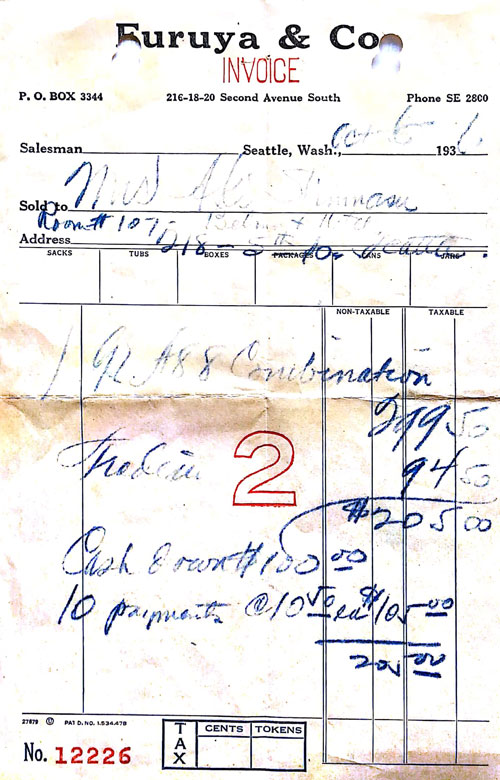 Furuya & Co
INVOICE
P. O. BOX 3344 216-18-20 Second Avenue South Phone SE 2800
Salesman Seattle, Wash., Oct 6 1936
Sold to Mrs
Room # 107
Address 218 - 5th So. Seattle.
SACKS TUBS BOXES PACKAGES CANS JARS
NON-TAXABLE TAXABLE
1 Combination
299 50
Trade in 94 50
2
$205 00
Cash down $100 00
10 payments @ 10 50 ea $105 00
205 00
27879 PAT D. NO. 1,534,478
No. 12226
TAX CENTS TOKENS